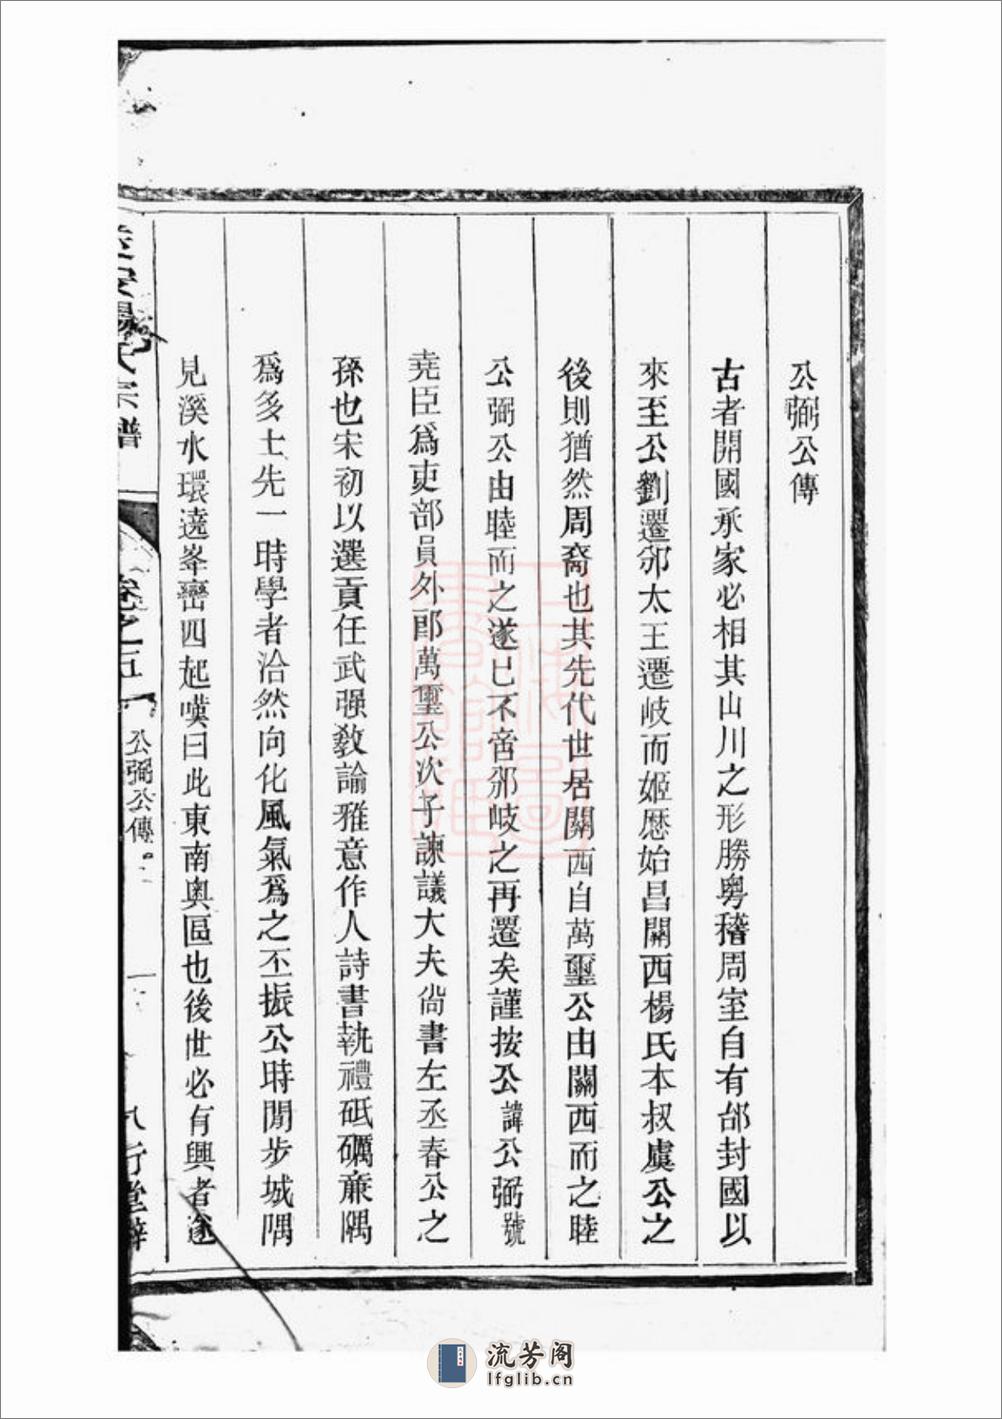 公弼公傳
古者開國承家必相其山川之形勝粤稽周室自有邰封國以
來至公劉遷邠太王遷岐而姬歷始昌關西楊氏本叔虞公之
後則猶然周裔也其先代世居關西自萬璽公由關西而之睦
公弼公由睦而之遂已不啻邠岐之再遷矣謹按公諱公弼號
堯臣爲吏部員外郎萬璽公次子諫議大夫尚書左丞春公之
孫也宋初以選貢任武强教諭雅意作人詩書執禮砥礪廉隅
爲多士先一時學者洽然向化風氣爲之丕振公時閒步城隅
見溪水環遶峯巒四起嘆曰此東南奥區也後世必有興者遂
楊氏宗譜
卷之五
公弼公傳
一
八行堂
流芳阁
lfglib.cn